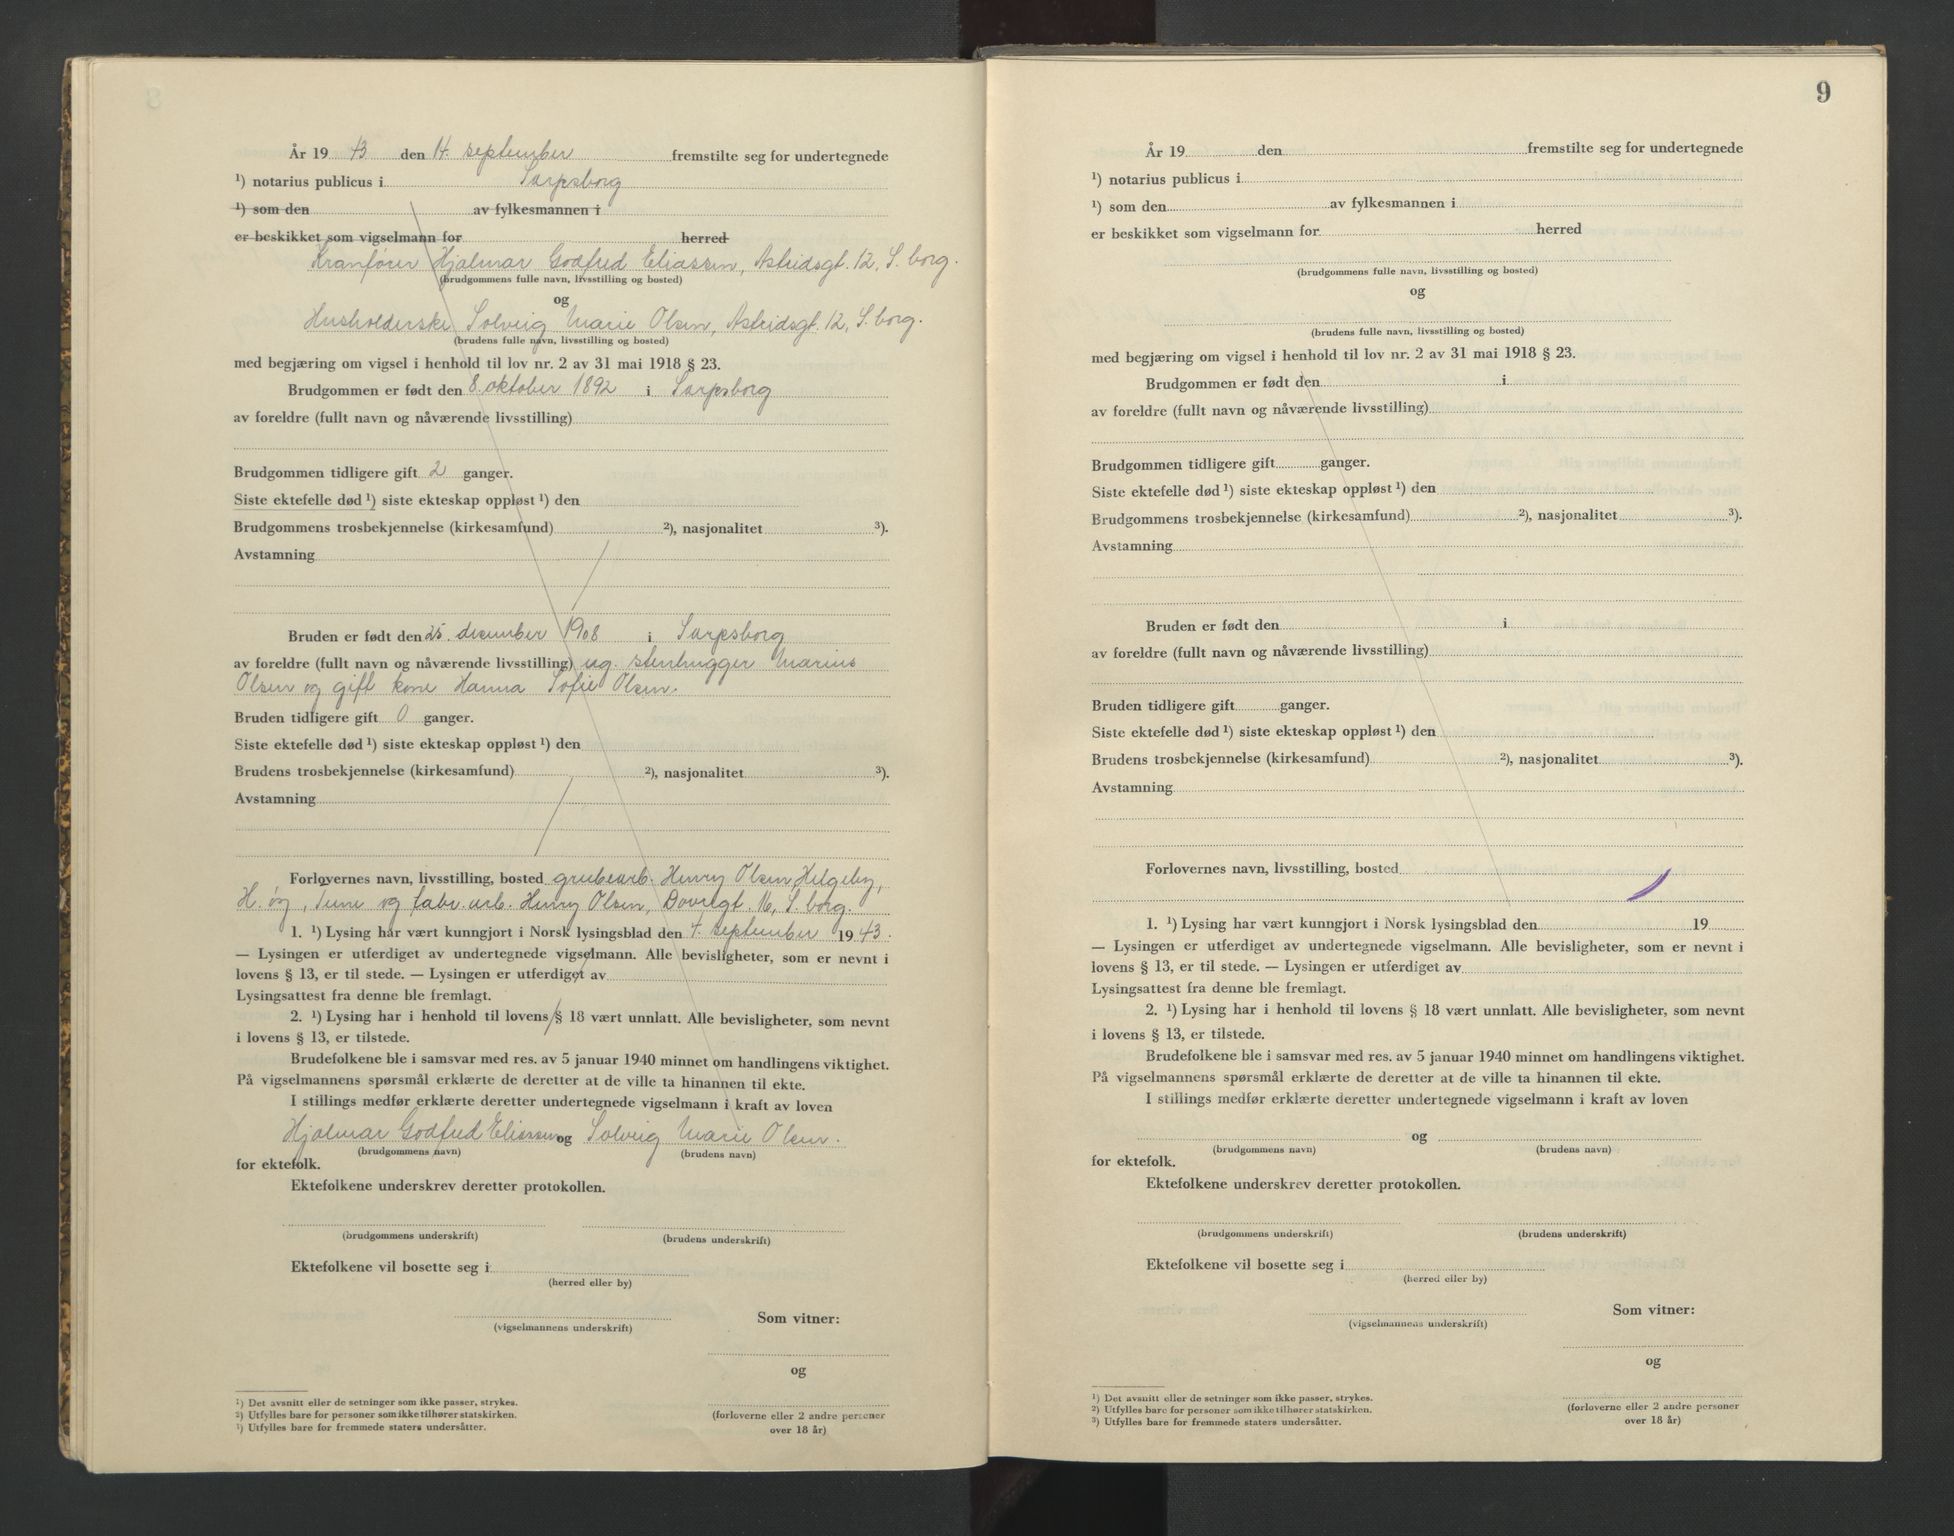 År 19 43 den 14. september fremstilte seg for undertegnede
¹) notarius publicus i Sarpsborg
¹) som den av fylkesmannen i
er beskikket som vigselmann for herred
Kranfører Hjalmar Godfred Eliassen, Astridsgt. 12, S.borg.
(brudgommens fulle navn, livsstilling og bosted)
og
Husholderske Solveig Marie Olsen, Astridsgt. 12, S.borg.
(brudens fulle navn, livsstilling og bosted)
med begjæring om vigsel i henhold til lov nr. 2 av 31 mai 1918 § 23.
Brudgommen er født den 8. oktober 1892 i Sarpsborg
av foreldre (fullt navn og nåværende livsstilling)
Brudgommen tidligere gift 2 ganger.
Siste ektefelle død ¹) siste ekteskap oppløst ¹) den
Brudgommens trosbekjennelse (kirkesamfund) ²), nasjonalitet ³).
Avstamning
Bruden er født den 25. december 1908 i Sarpsborg
av foreldre (fullt navn og nåværende livsstilling) ug. stenhugger Marius
Olsen og gift kone Hanna Sofie Olsen.
Bruden tidligere gift 0 ganger.
Siste ektefelle død ¹) siste ekteskap oppløst ¹) den
Brudens trosbekjennelse (kirkesamfund) ²), nasjonalitet ³).
Avstamning
Forlovernes navn, livsstilling, bosted grubearb. Henry Olsen, Helgeby,
H. øy, Tune og fabr. arb. Henry Olsen, Dovregt. 16, S.borg.
1. ¹) Lysing har vært kunngjort i Norsk lysingsblad den 4. september 19 43.
— Lysingen er utferdiget av undertegnede vigselmann. Alle bevisligheter, som er nevnt i
lovens § 13, er til stede. — Lysingen er utferdiget av
Lysingsattest fra denne ble fremlagt.
2. ¹) Lysing har i henhold til lovens § 18 vært unnlatt. Alle bevisligheter, som nevnt
i lovens § 13, er tilstede.
Brudefolkene ble i samsvar med res. av 5 januar 1940 minnet om handlingens viktighet.
På vigselmannens spørsmål erklærte de deretter at de ville ta hinannen til ekte.
I stillings medfør erklærte deretter undertegnede vigselmann i kraft av loven
Hjalmar Godfred Eliassen og Solveig Marie Olsen.
(brudgommens navn) (brudens navn)
for ektefolk.
Ektefolkene underskrev deretter protokollen.
(brudgommens underskrift) (brudens underskrift)
Ektefolkene vil bosette seg i
(herred eller by)
Som vitner:
(vigselmannens underskrift)
og
¹) Det avsnitt eller de setninger som ikke passer, strykes.
²) Utfylles bare for personer som ikke tilhører statskirken.
³) Utfylles bare for fremmede staters undersåtter.
(forloverne eller 2 andre personer
over 18 år)
9
År 19 den fremstilte seg for undertegnede
¹) notarius publicus i
¹) som den av fylkesmannen i
er beskikket som vigselmann for herred
(brudgommens fulle navn, livsstilling og bosted)
og
(brudens fulle navn, livsstilling og bosted)
med begjæring om vigsel i henhold til lov nr. 2 av 31 mai 1918 § 23.
Brudgommen er født den i
av foreldre (fullt navn og nåværende livsstilling)
Brudgommen tidligere gift ganger.
Siste ektefelle død ¹) siste ekteskap oppløst ¹) den
Brudgommens trosbekjennelse (kirkesamfund) ²), nasjonalitet ³).
Avstamning
Bruden er født den i
av foreldre (fullt navn og nåværende livsstilling)
Bruden tidligere gift ganger.
Siste ektefelle død ¹) siste ekteskap oppløst ¹) den
Brudens trosbekjennelse (kirkesamfund) ²), nasjonalitet ³).
Avstamning
Forlovernes navn, livsstilling, bosted
1. ¹) Lysing har vært kunngjort i Norsk lysingsblad den 19
— Lysingen er utferdiget av undertegnede vigselmann. Alle bevisligheter, som er nevnt i
lovens § 13, er til stede. — Lysingen er utferdiget av
Lysingsattest fra denne ble fremlagt.
2. ¹) Lysing har i henhold til lovens § 18 vært unnlatt. Alle bevisligheter, som nevnt
i lovens § 13, er tilstede.
Brudefolkene ble i samsvar med res. av 5 januar 1940 minnet om handlingens viktighet.
På vigselmannens spørsmål erklærte de deretter at de ville ta hinannen til ekte.
I stillings medfør erklærte deretter undertegnede vigselmann i kraft av loven
og
(brudgommens navn) (brudens navn)
for ektefolk.
Ektefolkene underskrev deretter protokollen.
(brudgommens underskrift) (brudens underskrift)
Ektefolkene vil bosette seg i
(herred eller by)
Som vitner:
(vigselmannens underskrift)
og
¹) Det avsnitt eller de setninger som ikke passer, strykes.
²) Utfylles bare for personer som ikke tilhører statskirken.
³) Utfylles bare for fremmede staters undersåtter.
(forloverne eller 2 andre personer
over 18 år)